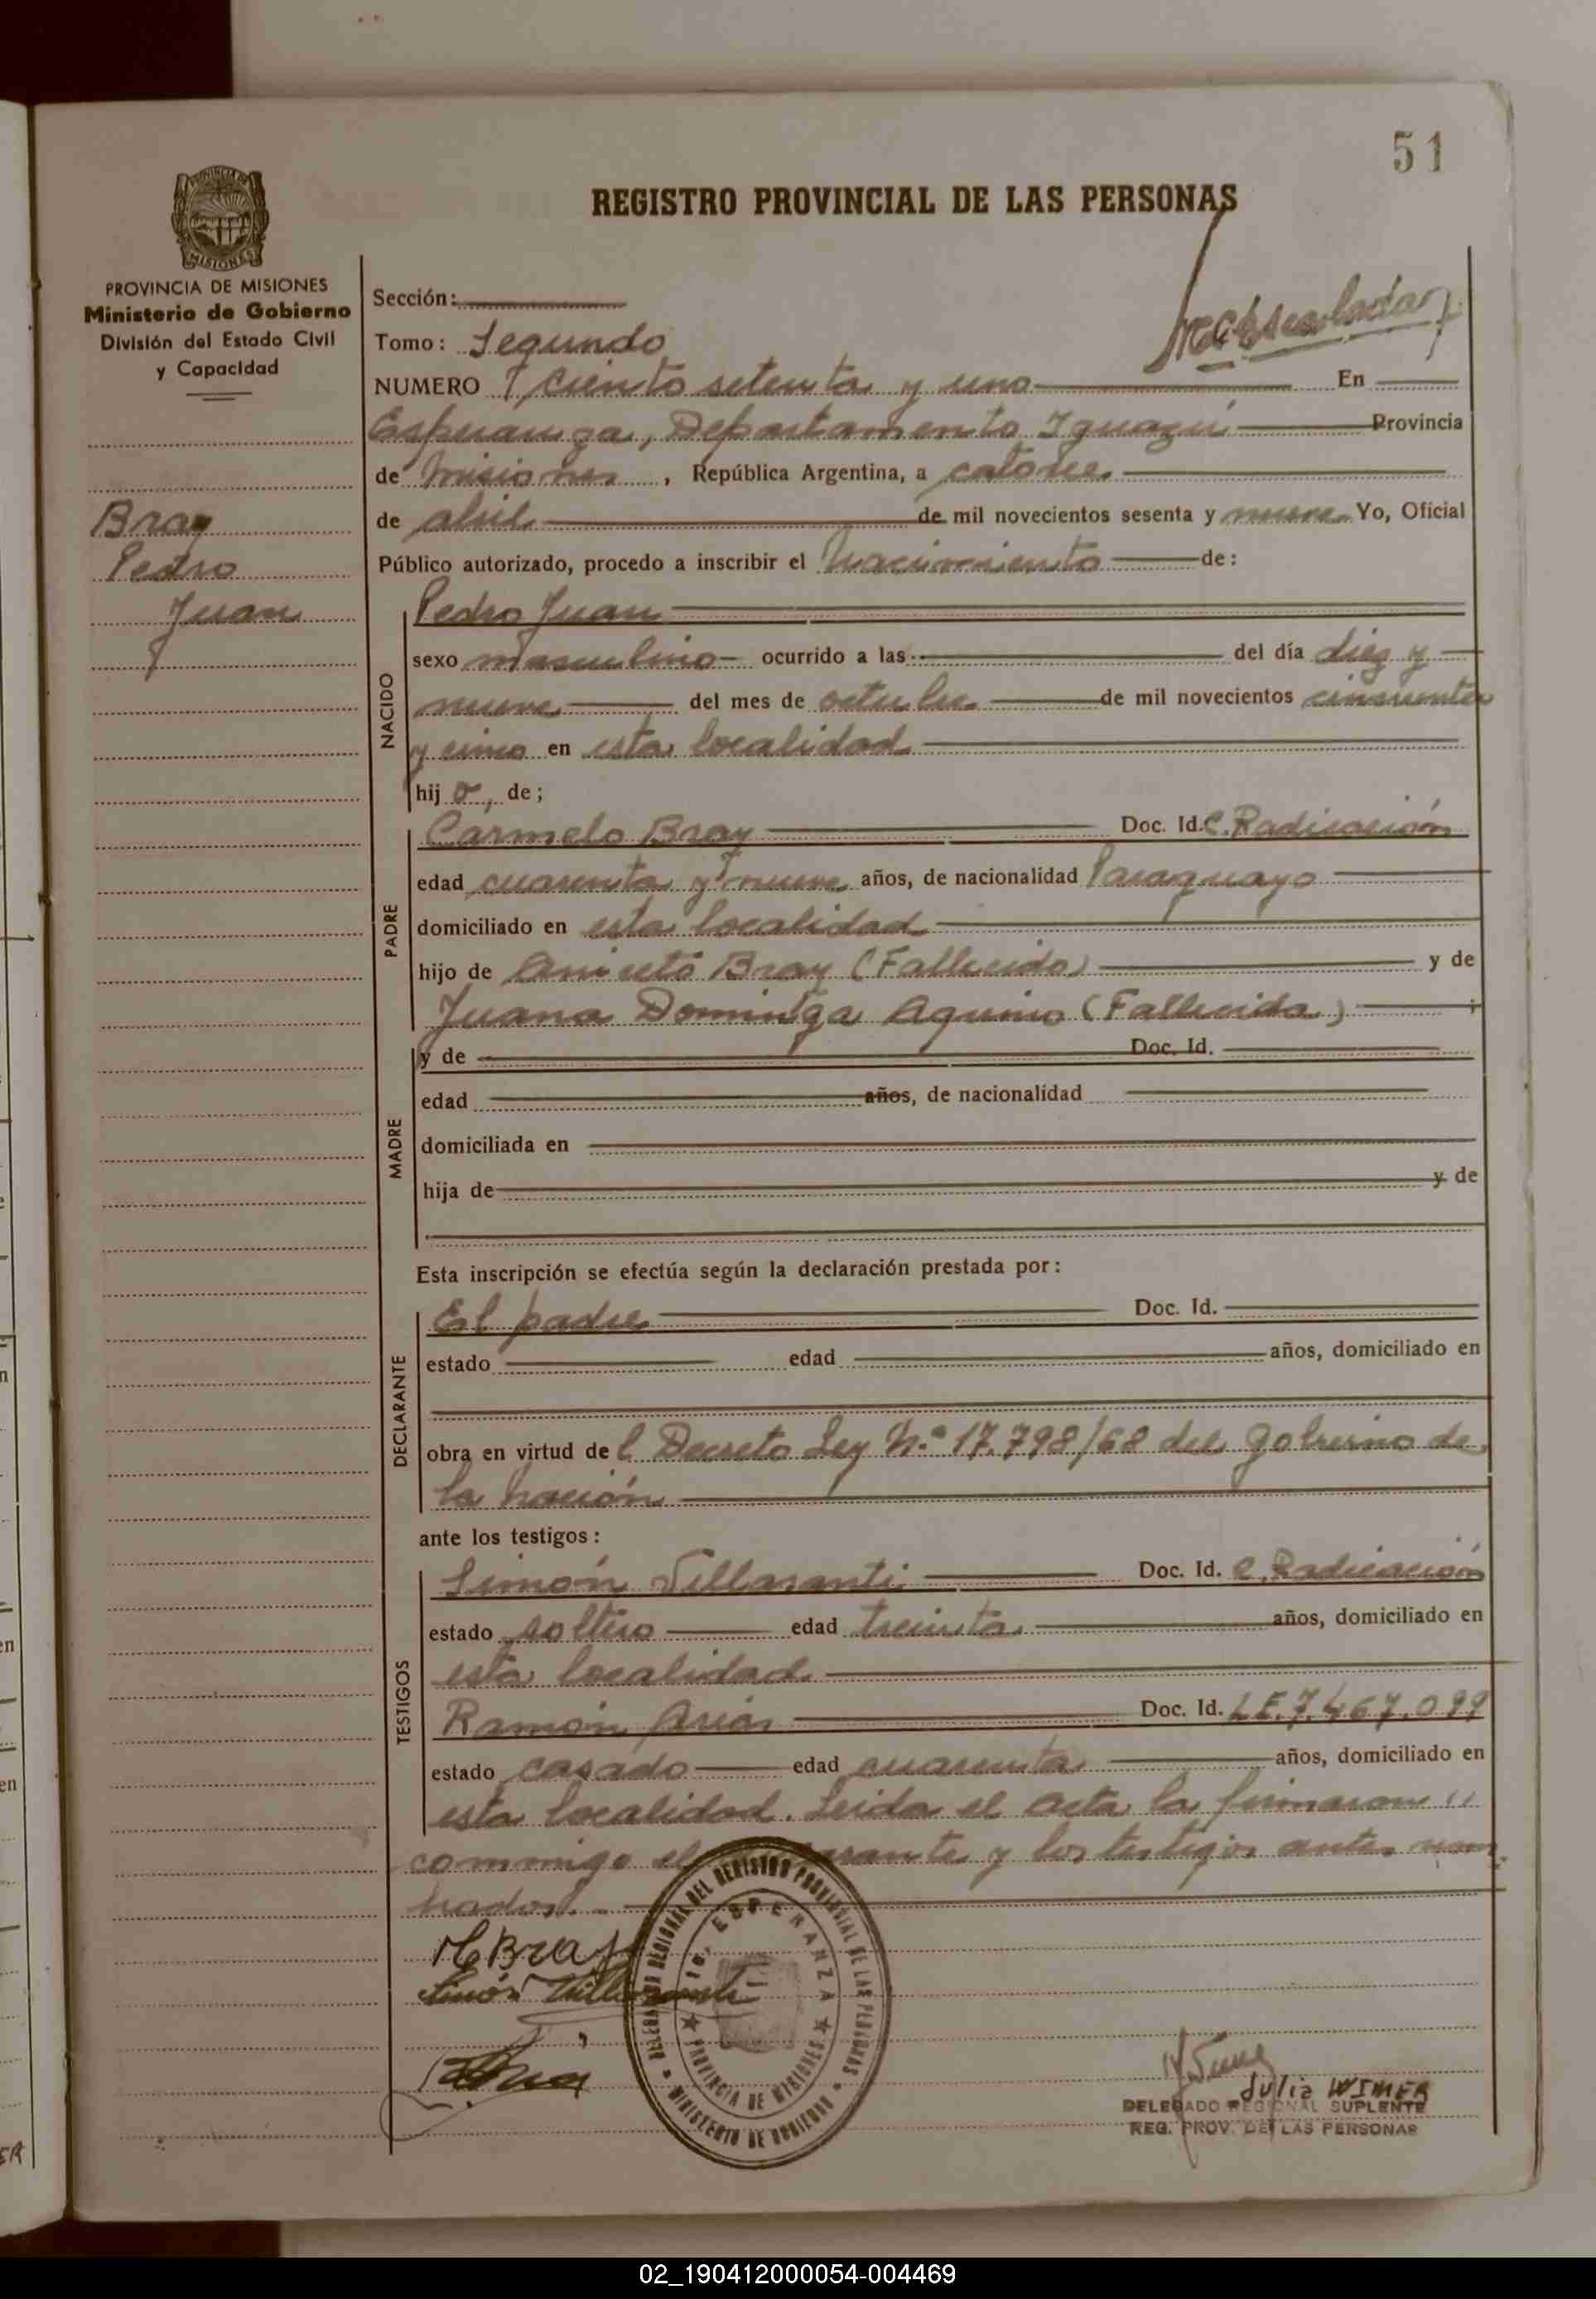 51
REGISTRO PROVINCIAL DE LAS PERSONAS
PROVINCIA DE MISIONES
Ministerio de Gobierno
División del Estado Civil
y Capacidad
Bray
Pedro
Juan
Sección:
Tomo: Segundo
NUMERO ciento setenta y uno En
Esperanza, Departamento Iguazú Provincia
de Misiones, República Argentina, a catorce
de abril de mil novecientos sesenta y nueve Yo, Oficial
Público autorizado, procedo a inscribir el Nacimiento de:
NACIDO
Pedro Juan
sexo masculino ocurrido a las del día diez y
nueve del mes de octubre de mil novecientos cincuenta
y cinco en esta localidad
hijo, de;
PADRE
Carmelo Bray Doc. Id. C. Radicación
edad cuarenta y nueve años, de nacionalidad Paraguayo
domiciliado en esta localidad
hijo de Aniceto Bray (Fallecido) y de
Juana Dominga Aquino (Fallecida);
MADRE
y de Doc. Id.
edad años, de nacionalidad
domiciliada en
hija de y de
Esta inscripción se efectúa según la declaración prestada por:
DECLARANTE
El padre Doc. Id.
estado edad años, domiciliado en
obra en virtud de l Decreto Ley N.º 17.798/68 del Gobierno de
la nación
ante los testigos:
TESTIGOS
Simón Villasanti Doc. Id. C. Radicación
estado soltero edad treinta años, domiciliado en
esta localidad
Ramón Arias Doc. Id. L.E. 7.467.099
estado casado edad cuarenta años, domiciliado en
esta localidad. Leida el acta la firmaron
conmigo el arante y los testigos antes nom
brados.
Bray
Simón Villasanti
DELEGACION REGIONAL DEL REGISTRO PROVINCIAL DE LAS PERSONAS
MINISTERIO DE GOBIERNO
Pto. ESPERANZA
PROVINCIA DE MISIONES
Julia WIMER
DELEGADO REGIONAL SUPLENTE
REG. PROV. DE LAS PERSONAS
02_190412000054-004469